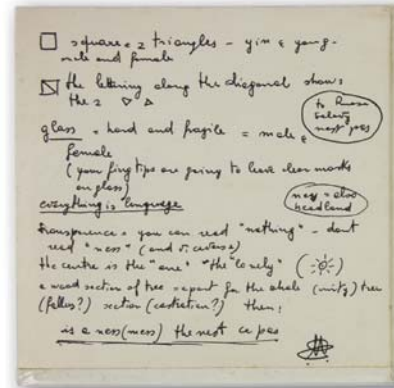 square = 2 triangles - yin & yang -
male and female
the lettering along the diagonal shows
the 2
to
next pas
glass = hard and fragile = male &
female
(your fingtips are going to leave clear marks
on glass)
ness = also
headland
everything is language
transparence = you can read "nothing" - dont
read "ness" (and v. ceversa)
the centre is the "one" "the lonely"
a wood section of tree = a part for the whole (unity) tree
(fallus?) section (castration?) then:
is a ness (mess) the nest ce pas